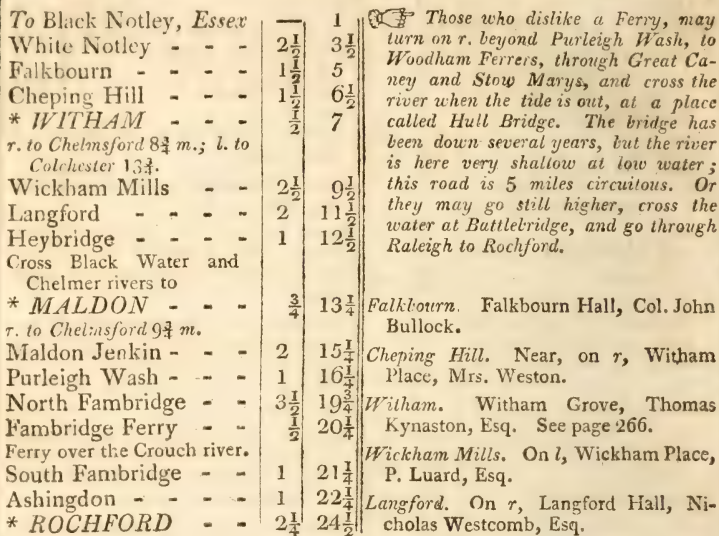 To Black Notley, Essex — 1
White Notley - - - 2½ 3½
Falkbourn - - - - 1½ 5
Cheping Hill - - - 1½ 6½
* WITHAM - - - ½ 7
r. to Chelmsford 8¾ m.; l. to
Colchester 13¾.
Wickham Mills - - 2½ 9½
Langford - - - - 2 11½
Heybridge - - - - 1 12½
Cross Black Water and
Chelmer rivers to
* MALDON - - - ¾ 13¼
r. to Chelmsford 9¾ m.
Maldon Jenkin - - - 2 15¼
Purleigh Wash - - - 1 16¼
North Fambridge - - 3½ 19¾
Fambridge Ferry - - ½ 20¼
Ferry over the Crouch river.
South Fambridge - - 1 21¼
Ashingdon - - - - 1 22¼
* ROCHFORD - - 2¼ 24½
☞ Those who dislike a Ferry, may
turn on r. beyond Purleigh Wash, to
Woodham Ferrers, through Great Ca-
ney and Stow Marys, and cross the
river when the tide is out, at a place
called Hull Bridge. The bridge has
been down several years, but the river
is here very shallow at low water;
this road is 5 miles circuitous. Or
they may go still higher, cross the
water at Battlebridge, and go through
Raleigh to Rochford.
Falkbourn. Falkbourn Hall, Col. John
Bullock.
Cheping Hill. Near, on r, Witham
Place, Mrs. Weston.
Witham. Witham Grove, Thomas
Kynaston, Esq. See page 266.
Wickham Mills. On l, Wickham Place,
P. Luard, Esq.
Langford. On r, Langford Hall, Ni-
cholas Westcomb, Esq.